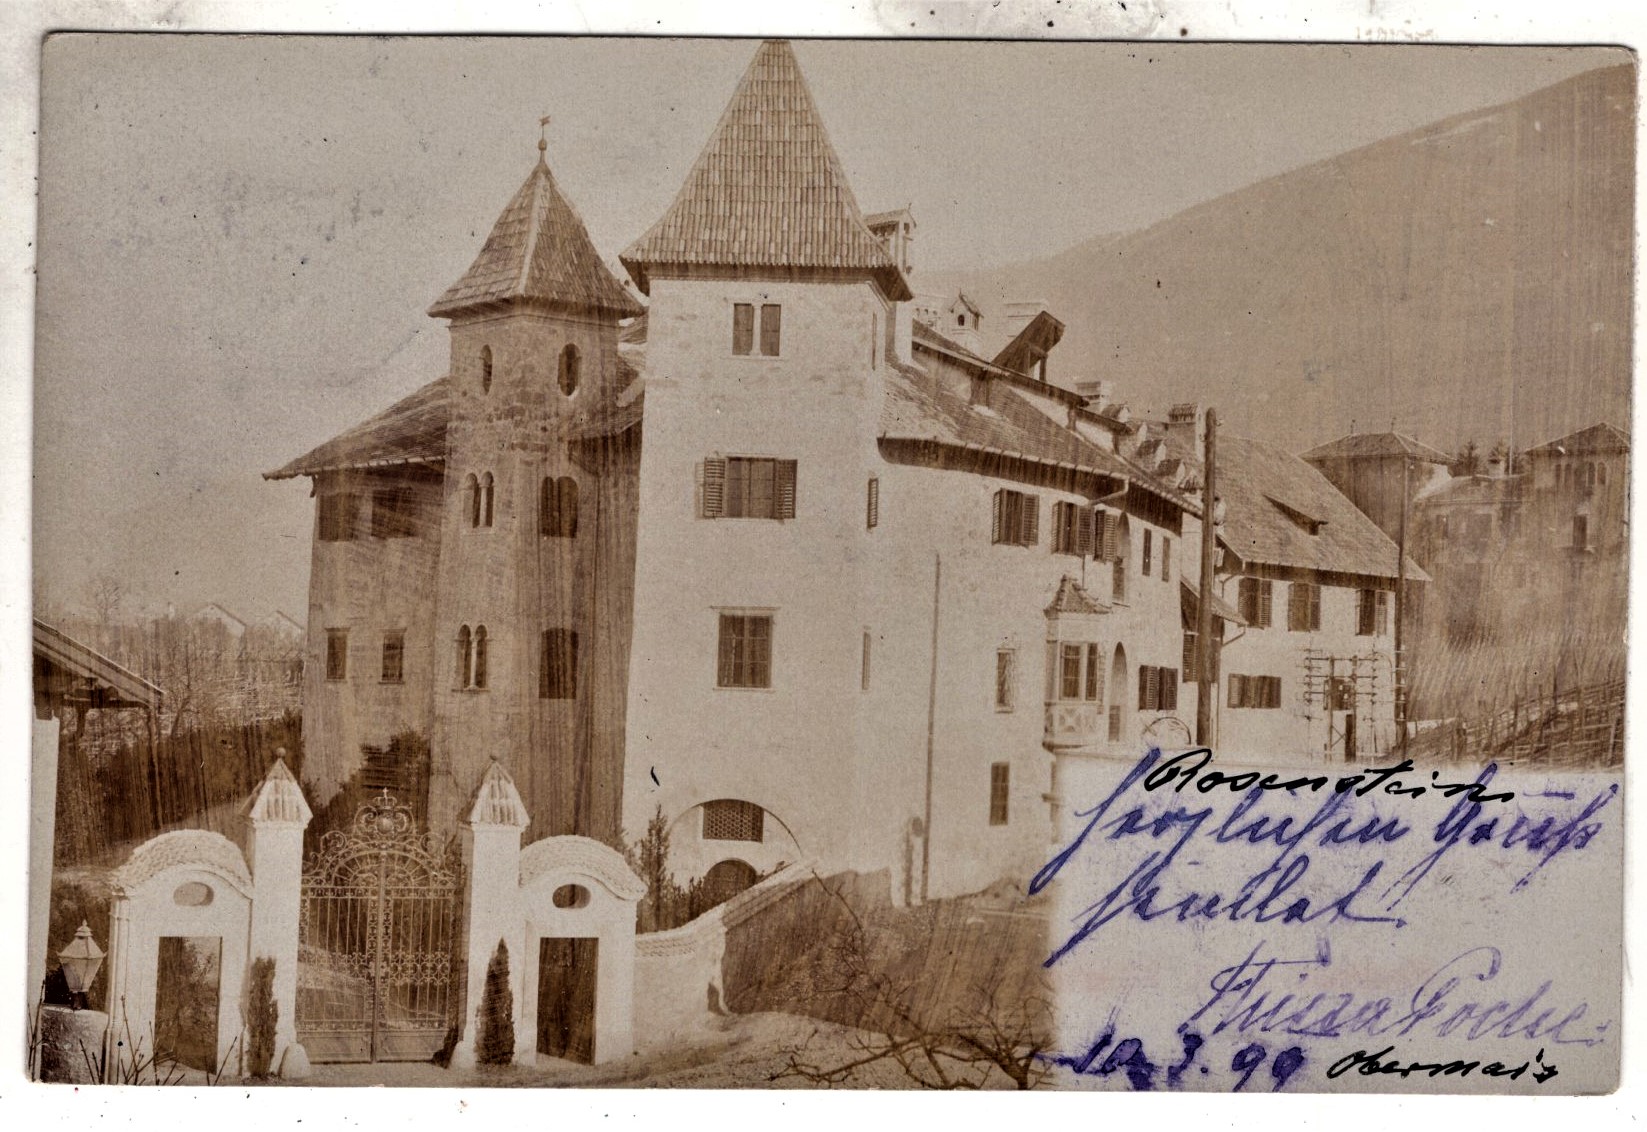 Rosenstein
Herzlichen Gruß
sendet
10.3.99 Obermais